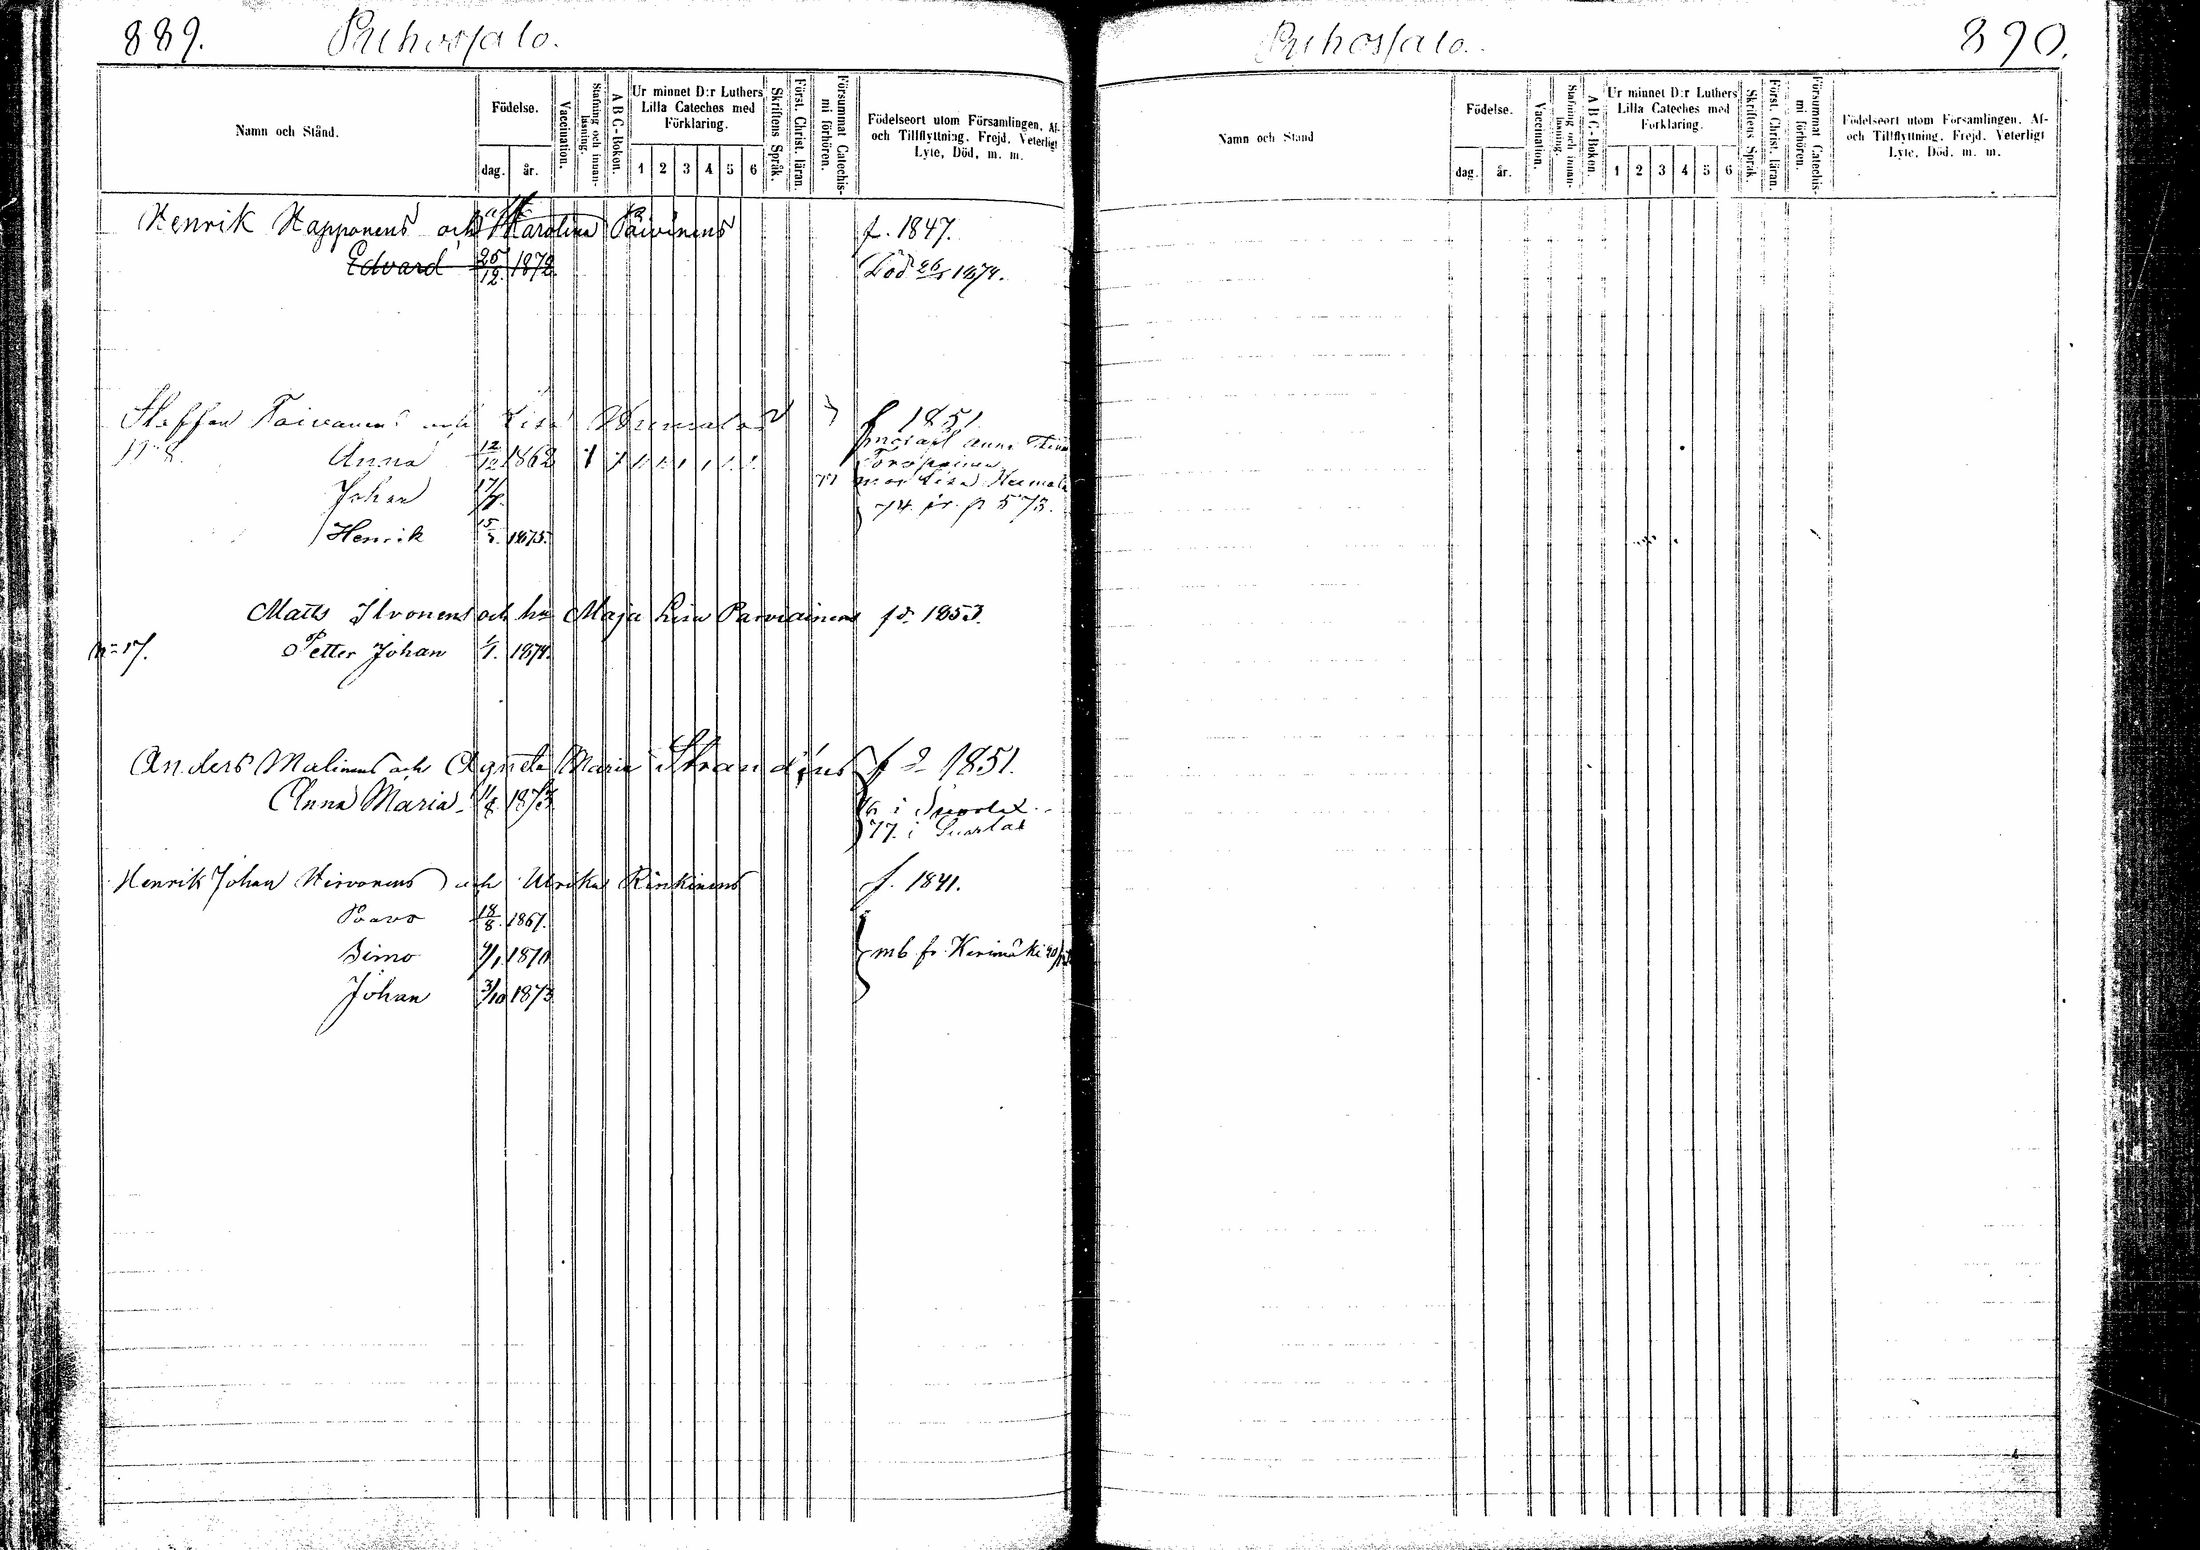 889. Pihossalo.
Namn och Stånd.
Födelse.
dag.
år.
Vaccination.
Stafning och innan-
läsning.
A B C-Boken.
Ur minnet D:r Luthers
Lilla Cateches med
Förklaring.
1 2 3 4 5 6
Skriftens Språk.
Först. Christ. läran.
Försummat Catechis-
mi förhören.
Födelseort utom Församlingen, Af-
och Tillflyttning. Frejd. Veterligt
Lyte, Död, m. m.
Henrik Happonens och Karolina Päivinens f. 1847.
Edvard 25/12 1872 Död 26/ 1874.
Staffan och Lisa f 1851
Anna 12/12 1862
Johan 17/
mor Lisa
Henrik 15/ 1875.
Matts Ilvonens och hu Maja Lisa Parviainens fd. 1853.
No 17. Petter Johan 1/1. 1874.
Anders Malinens och Agneta Maria Strandjns fd 1851.
Anna Maria 11/8. 1873
77. i
Henrik Johan Hirvonens och Ulrika Rinkinens f. 1841.
Paavo 18/8. 1867.
Simo 9/1 1870 mb fr. Kerimäki
Johan 3/10 1873
Pihossalo. 890.
Namn och Stand
Födelse.
dag.
år.
Vaccination.
Stafning och innan-
läsning.
A B C-Boken.
Ur minnet D:r Luthers
Lilla Cateches med
Förklaring.
1 2 3 4 5 6
Skriftens Språk.
Först. Christ. läran.
Försummat Catechis-
mi förhören.
Födelseort utom Församlingen. Af-
och Tillflyttning. Frejd. Veterligt
Lyte, Död. m. m.